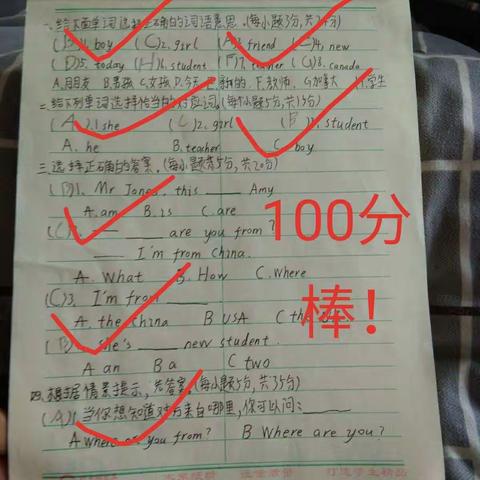 一.给下面单词选择正确的词语意思.(每小题3分,共24分)
1. boy (C)2. girl (A)3. friend 4. new
(D)5. today (H)6. student (F)7. teacher (G)8. canada
A.朋友 B.男孩 C.女孩 D.今天 E.新的. F.教师. G加拿大 H.学生
二.给下列单词选择恰当的对应词.(每小题5分,共15分)
(A)1.she ( )2. girl (B)3. student
A. he B. teacher C. boy
三.选择正确的答案.(每小题5分,共20分)
(B)1. Mr Jones, this ___ Amy
A. am B. is C. are
(C)2. ___ are you from?
___ I'm from China.
A. What B. How C. Where
(C)3. I'm from ___
A. the China B USA C the
she's ___ new student.
A an B a C two
四.根据情景提示,选答案.(每小题5分,共35分)
(A)1.当你想知道对方来自哪里,你可以问:___
A where are you from? B Where are you?
100分
棒!